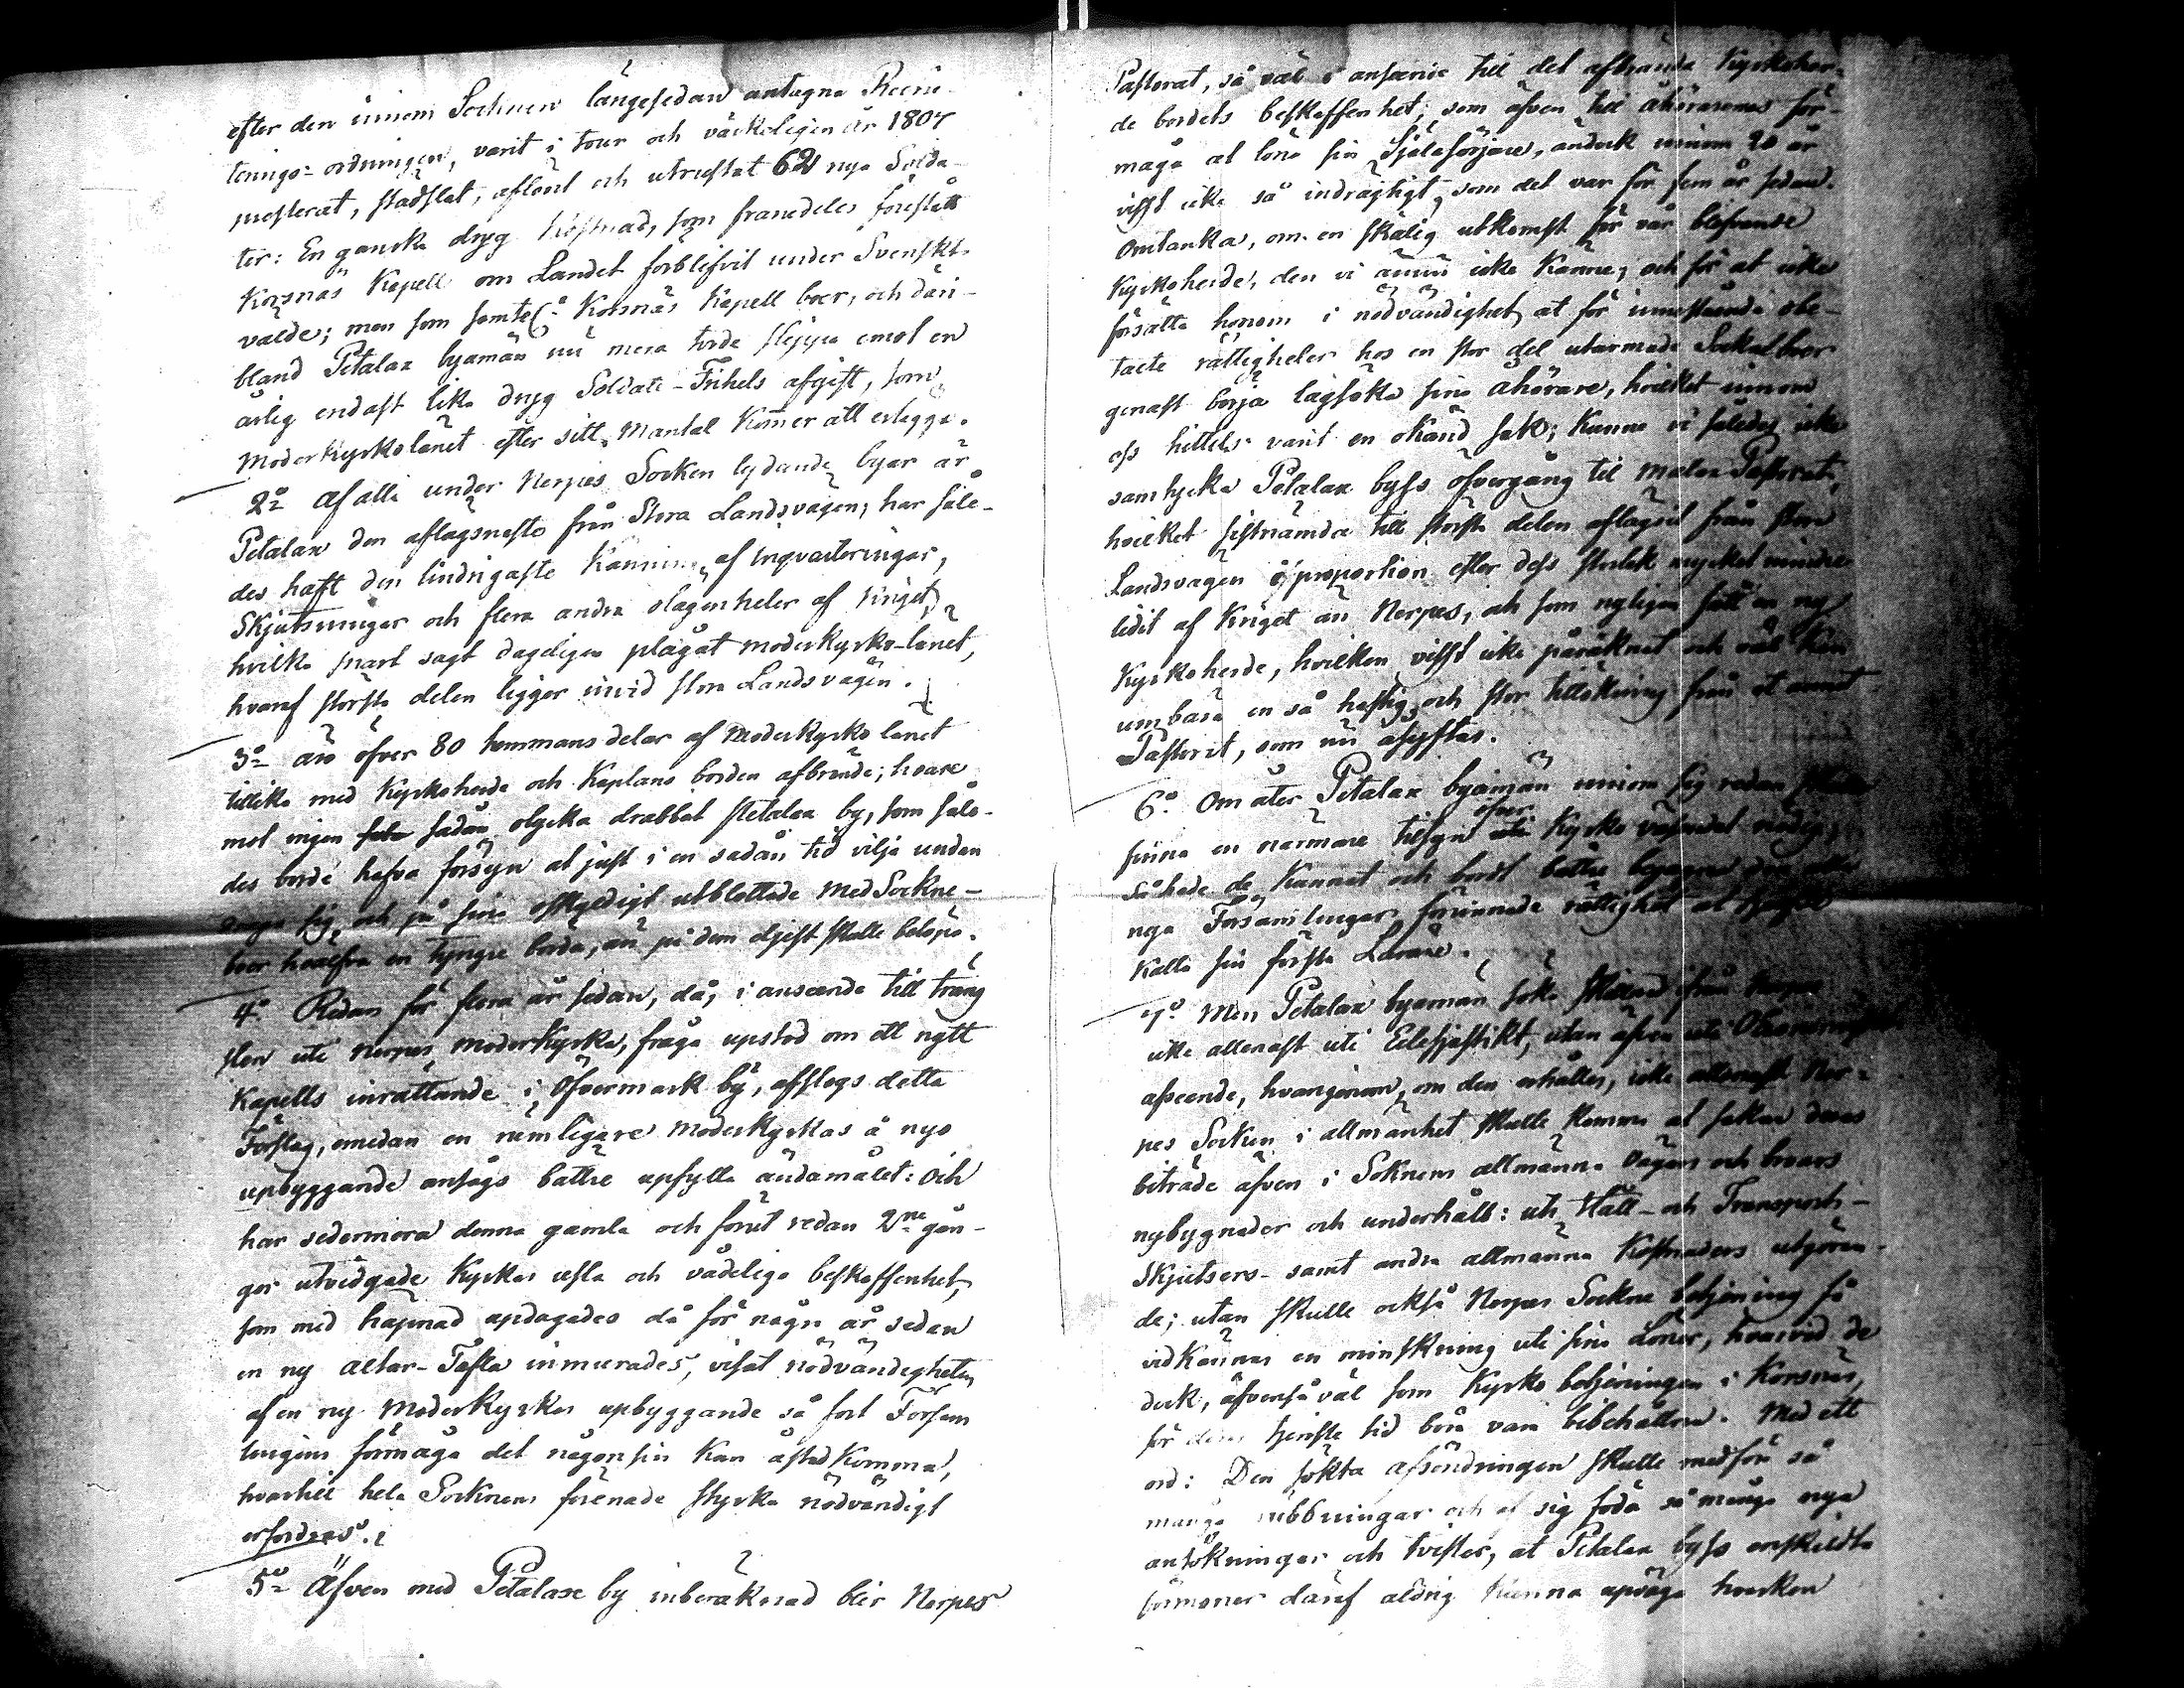 efter den innom Socknen långesedan antagne Recru-
terings-ordningen, varit i tour och värkeligen år 1807
præsterat, stadslat, aflönt och utrustat 62 nya Solda-
ter: En ganska dryg kostnad, som framdeles förestått
Korsnäs Kapell om Landet förblifvit under Svenskt
välde; men som samtel. Korsnäs Kapell boer, och där-
bland Petalax byamän nu mera torde slippa emot en
årlig endast lika dryg Soldate-Frihets afgift, som
Moderkyrkolänet efter sitt Mantal kommer att erlägga.
2o Af alla under Nerpes Socken lydande byar är
Petalax den aflägsnaste från Stora Landsvägen, har såle-
des haft den lindrigaste känning af Inqvarteringar,
Skjutsningar och flera andra olägenheter af kriget,
hvilka snart sagt dageligen plågat moderkyrko-länet,
hvaraf största delen ligger invid stora Landsvägen.
3o äro öfver 80 hemmans delar af Moderkyrko länet
tillika med Kyrkoherde och Kaplans borden afbrände; hvare-
mot ingen sådan olycka drabbat Petalax by, som såle-
des borde hafva försyn at just i en sådan tid vilja undan
draga sig, och på sina oskyldigt utblottade Med Sockne-
boer hvälfva en tyngre börda, än på dem eljest skulle belöpa.
4o Redan för flera år sedan, då, i anseende till träng
slen uti Nerpes moderkyrka, fråga upstod om ett nytt
Kapells inrättande i Öfvermark by, afslogs detta
Förslag, emedan en rumligare Moderkyrkas å nyo
upbyggande ansågs bättre upfylla ändamålet: Och
har sedermera denna gamla och förut redan 2ne gån-
ger utvidgade Kyrkas usla och vådeliga beskaffenhet,
som med häpnad updagades då för någre år sedan
en ny Altar-Tafla inmurades, visat nödvändigheten
af en ny Moderkyrkas upbyggande så fort Försam
lingens förmåga det någonsin kan åstadkomma,
hvartill hela Socknens förenade styrka nödvändigt
erfordras.
5o Äfven med Petalax by inberäknad blir Nerpes
Pastorat, så väl i anseende till det afbrända Kyrkoher-
de bordets beskaffenhet, som äfven till åhörarenas för-
måga at löna sin Själasörjare, ännock innom 20 år
visst icke så indrägtigt, som det var för fem år sedan.
Omtanka, om en skälig utkomst för vår blifvande
Kyrkoherde, den vi ännu icke känne, och för at icke
försätta honom i nödvändighet at för innestående obe-
talte rättigheter hos en stor del utarmade Sockneboer
genast börja lagsöka sina åhörare, hvilket innom
oss hittels varit en okänd sak; Kunna vi således icke
samtycka Petalax byss öfvergång til Malax Pastorat,
hvilket sistnämda till största delen aflägset från stora
Landsvägen i proportion efter dess storlek mycket mindre
lidit af kriget än Nerpes, och som nyligen fått en ny
Kyrkoherde, hvilken visst icke påräknat och väl kan
umbära en så hastig och stor tillökning från et annat
Pastorat, som nu åsyftas.
6o. Om åter Petalax byamän innom sig redan
finna en närmare tilsyn öfver Kyrko väsendet nödig,
så hade de kunnat och bordt bättre begagna den
nya Församlingar förunnade rättighet at
kalla sin första Lärare.
7o. Men Petalax byamän söka skillnad ifrån Nerpes
icke allenast uti Ecclesiastikt, utan äfven uti Oeconomiskt
afseende, hvarigenom, om den erhålles, icke allenast Ner-
pes Socken i allmänhet skulle komma at sakna deras
biträde äfven i Soknens allmänna Vägars och broars
nybygnader och underhåld: uti Håll- och Transport-
Skjutsers- samt andra allmänna Kostnaders utgöran-
de; utan skulle också Nerpes Sockne betjening få
vidkännas en minskning uti sina Löner, hvarvid de
dock, äfvenså väl som Kyrko betjeningen i Korsnäs,
för deras tjenste tid böra vara bibehållna. Med ett
ord: Den sökta afsöndringen skulle medföra så
många rubbningar och af sig föda så många nya
ansökningar och tvister, at Petalax byss enskildta
förmoner däraf aldrig kunna upväga hvarken